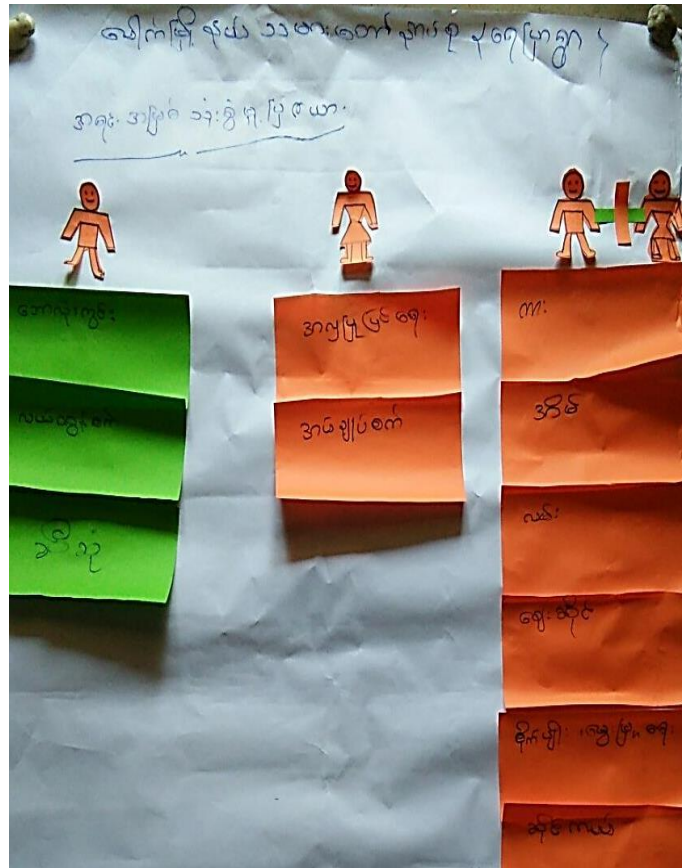 ပေါက်မြို့နယ် သမားတော် ရေမြာရွာ
အရင်းအမြစ် သုံးစွဲမှုပြဇယား
ဘောလုံးကွင်း
လယ်ထွန်စက်
အလှပြုပြင်ရေး
အပ်ချုပ်စက်
ကား
အိမ်
လမ်း
ဈေးဆိုင်
စိုက်ပျိုး မွေးမြူရေး
ဆိုင်ကယ်